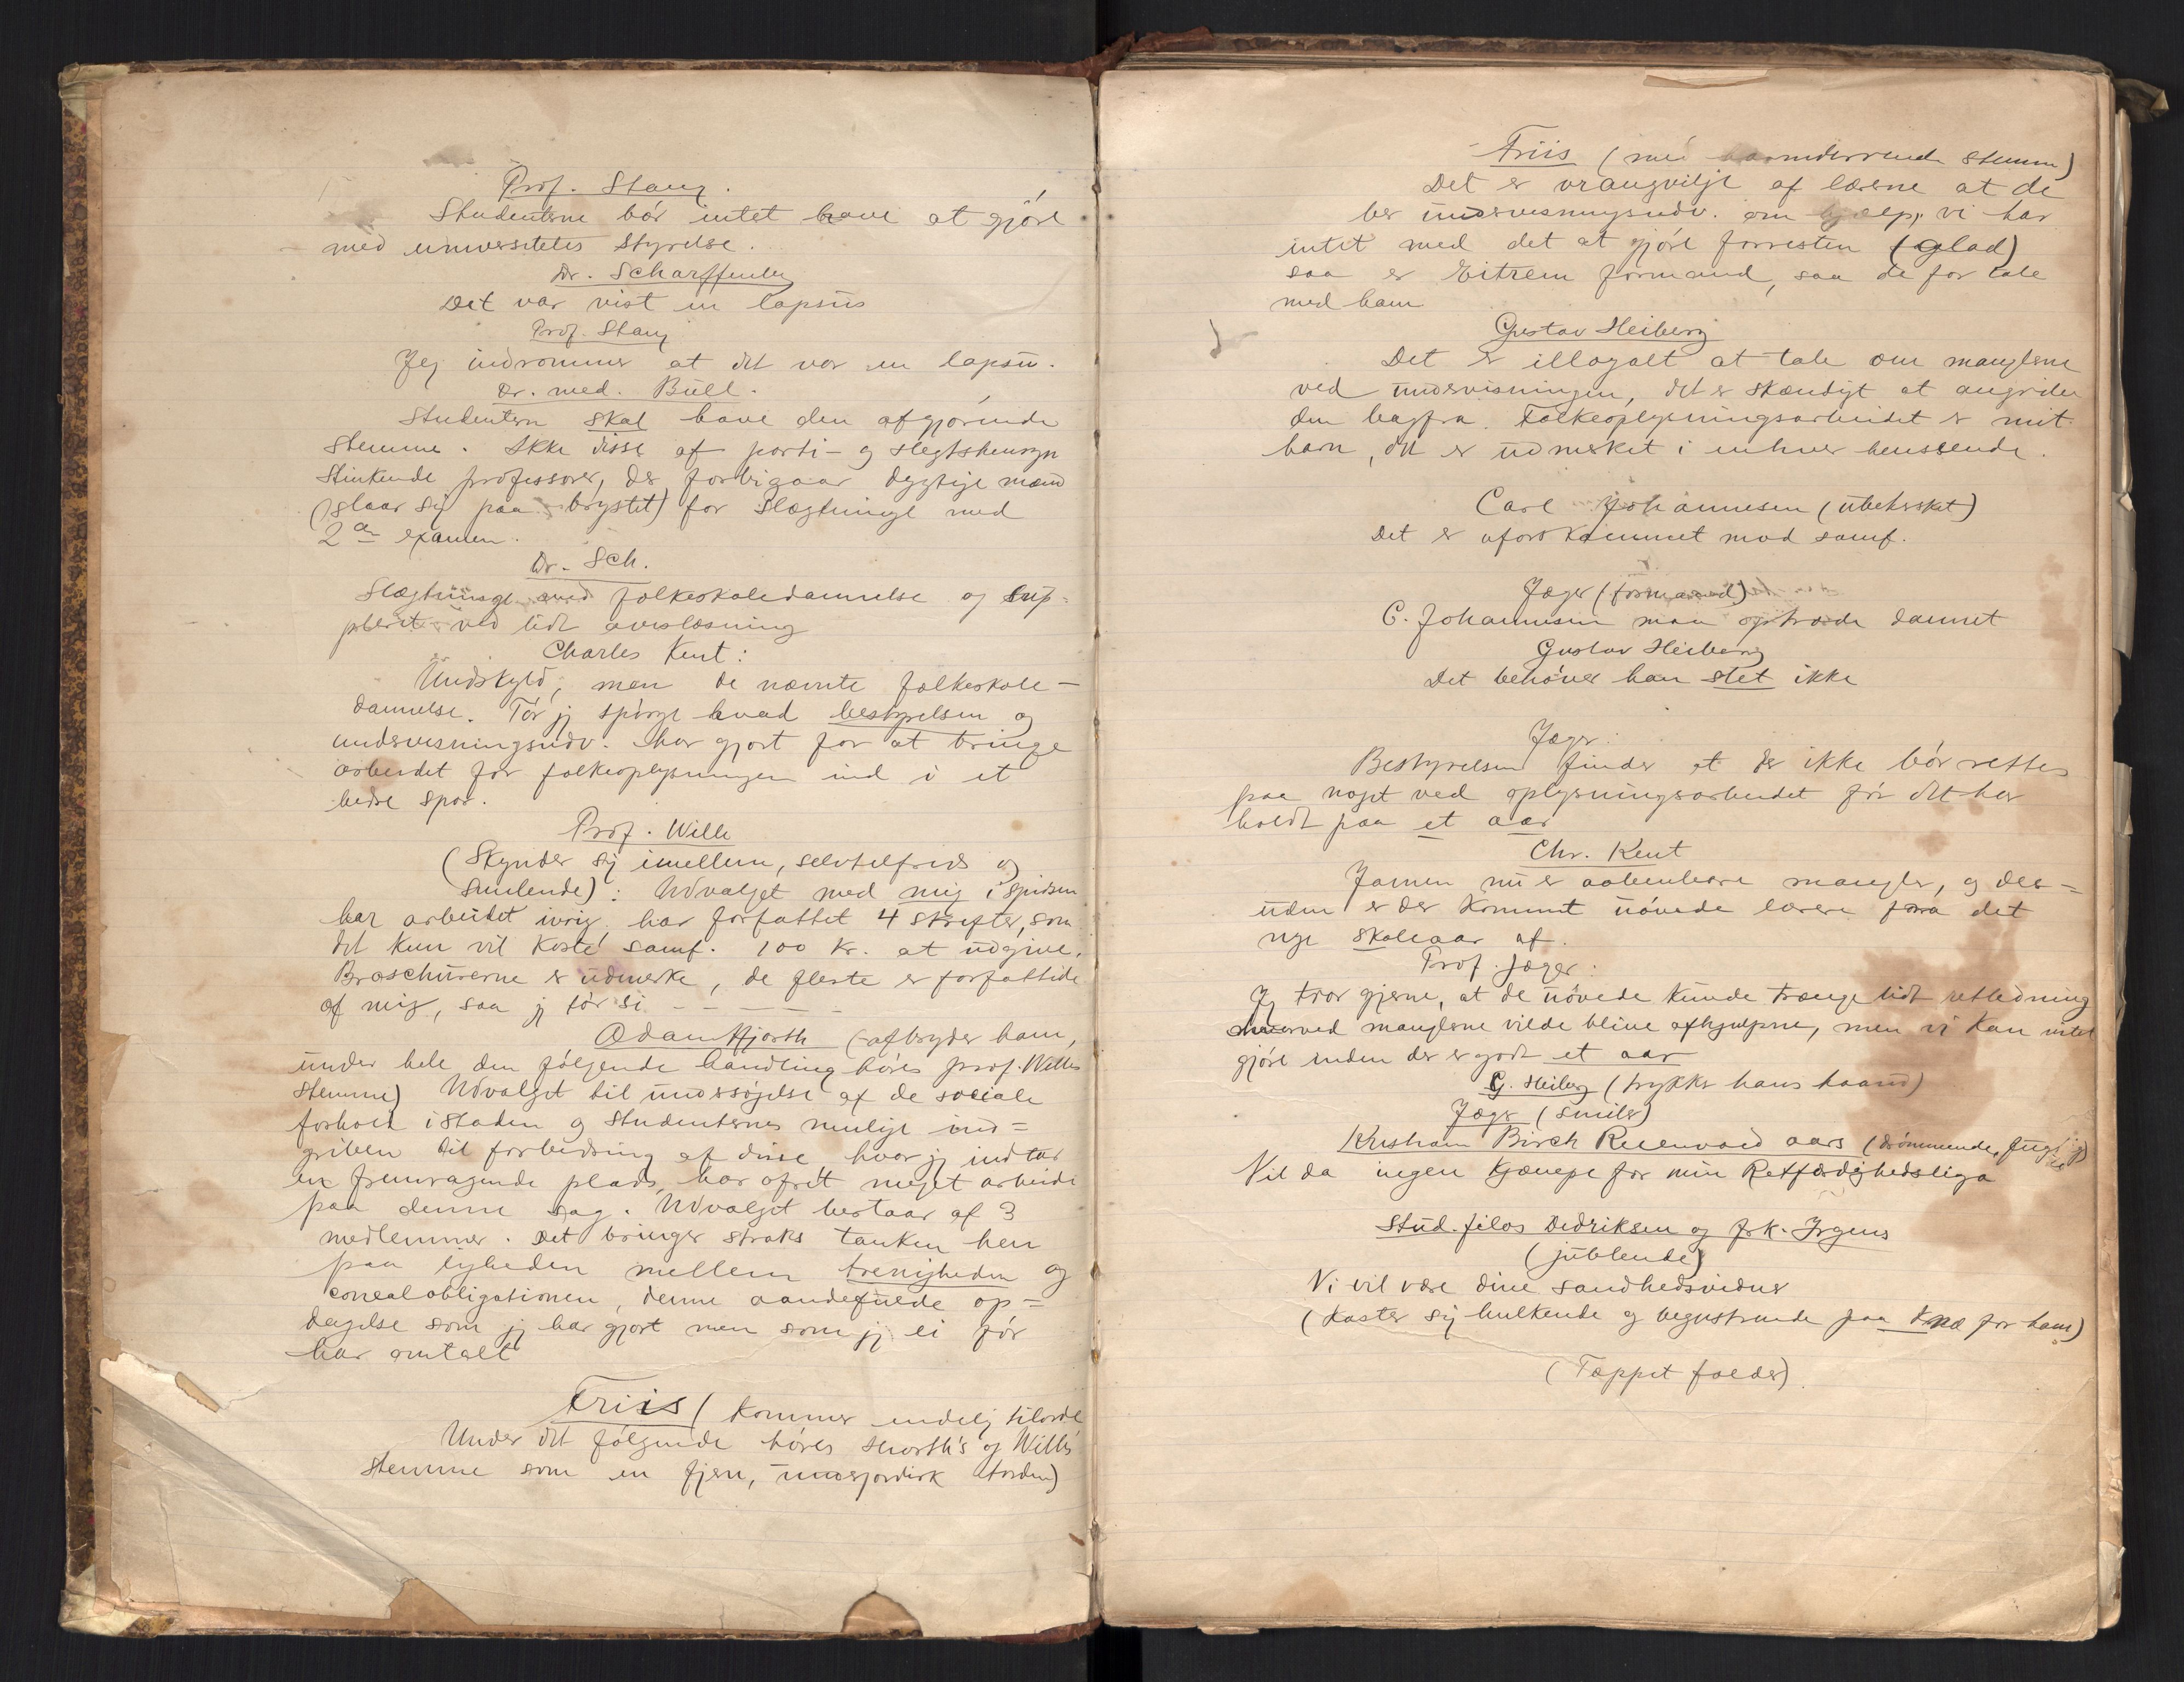 Prof. Stang.
Studenterne bör intet have at gjöre
med universitetets Styrelse.
Dr. Scharffenberg
Det var vist en lapsus
Prof. Stang
Jeg indrømmer at det var en lapsus.
Dr. med. Bull.
Studenten skal have den afgjörende
Stemme. Ikke disse af parti- og slegtshensyn
stinkende professorer, der forbigaar dygtige mænd
(slaar sig paa brystet) for slægtninge med
2den examen.
Dr. Sch.
Slægtninge med folkeskoledannelse og sup-
pleret ved lidt avislæsning
Charles Kent:
Undskyld, men de nævnte folkeskole-
dannelse. Tör jeg spörge hvad bestyrelsen og
undervisningsudv. har gjort for at bringe
arbeidet for folkeoplysningen ind i et
bedre spor.
Prof. Wille
(Skynder sig imellem, selvtilfreds og
smilende): Udvalget med mig i spidsen
har arbeidet ivrig, har forfattet 4 skrifter, som
det kun vil koste samf. 100 kr. at udgive.
Broschürerne er udmerke, de fleste er forfattede
af mig, saa jeg tör si - - - - -
Adam Hjorth (afbryder ham,
under hele den fölgende handling höres prof. Willes
stemme) Udvalget til undersøgelse af de sociale
forhold i staden og studenternes mulige ind-
griben til forbedring af disse hvor jeg indtar
en fremragende plads, har ofret meget arbeide
paa denne sag. Udvalget bestaar af 3
medlemmer. Det bringer straks tanken hen
paa ligheden mellem trenigheden og
correalobligationen, denne aandefulde op-
dagelse som jeg har gjort men som jeg ei för
har omtalt
Friis (kommer endelig tilorde
Under det fölgende höres Hjorth's og Willes
stemme som en fjern, underjordisk torden)
Friis (med stemme)
Det er vrangvilje af lærerne at de
ber undervisningsudv. om hjælp, vi har
intet med det at gjöre forresten (glad)
saa er Eitrem formand, saa de for tale
med ham
Gustav Heiberg
Det er illoyalt at tale om manglerne
ved undervisningen, det er skændigt at angribe
den bagfra. Folkeoplysningsarbeidet er mit
barn, det er udmerket i enhver henseende.
Carl Johannesen (ubehersket)
Det er uforskammet mod samf.
Jæger (formand)
C. Johannesen maa optræde dannet
Gustav Heiberg
Det behöver han slet ikke
Jæger:
Bestyrelsen finder at der ikke bör rettes
paa noget ved oplysningsarbeidet för det har
holdt paa et aar
Chr. Kent
Jamen nu er aabenbare mangler, og des-
uden er der kommet uövede lærere fra det
nye skoleaar af.
Prof. Jæger:
Jeg tror gjerne, at de uövede kunde trænge lidt vetledning
hvorved manglerne vilde blive afhjulpne, men vi kan intet
gjöre inden der er gaat et aar
G. Heiberg (trykker hans haand)
Jæger (smiler)
Kristian Birch Reichenwald Aars (drömmende,
Vil da ingen kjæmpe for min Retfærdighedsliga
Stud. filos Dedriksen og frk. Irgens
(jublende)
Vi vil være dine sandhedsvidner
(Kaster sig hulkende og begeistrende paa knæ for ham)
(Tæppet falder).